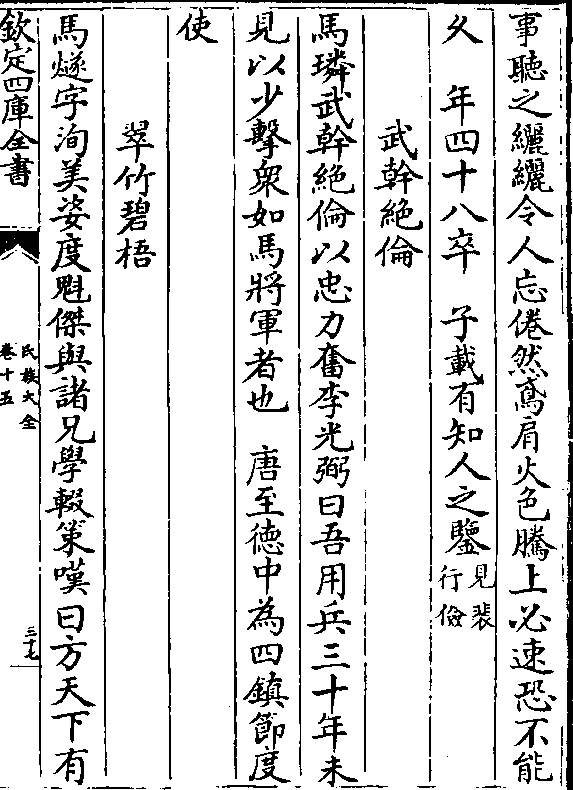 事聽之纚纚令人忘倦然鳶肩火色騰上必速恐不能
乆　年四十八卒　子載有知人之鑒見裴行儉
武幹絶倫
馬璘武幹絶倫以忠力奮李光弼曰吾用兵三十年未
見以少擊衆如馬將軍者也　唐至德中為四鎮節度
使
翠竹碧梧
馬燧字洵美姿度魁傑與諸兄學輟策嘆曰方天下有
欽定四庫全書
氏族大全
卷十五
三十七